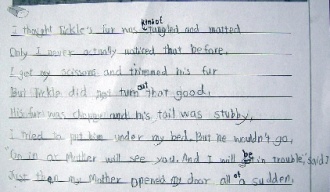 I thought Pickle's fur was kind of tangled and matted
Only I never actually noticed that before.
I got my scissors and trimmed his fur
But Pickle did not turn out that good,
His fur was choppy and his tail was stubby,
I tried to put him under my bed. But he wouldn't go,
"Go in or Mother will see you. And I will be in trouble," said I
Just then my Mother opened my door all of a sudden,